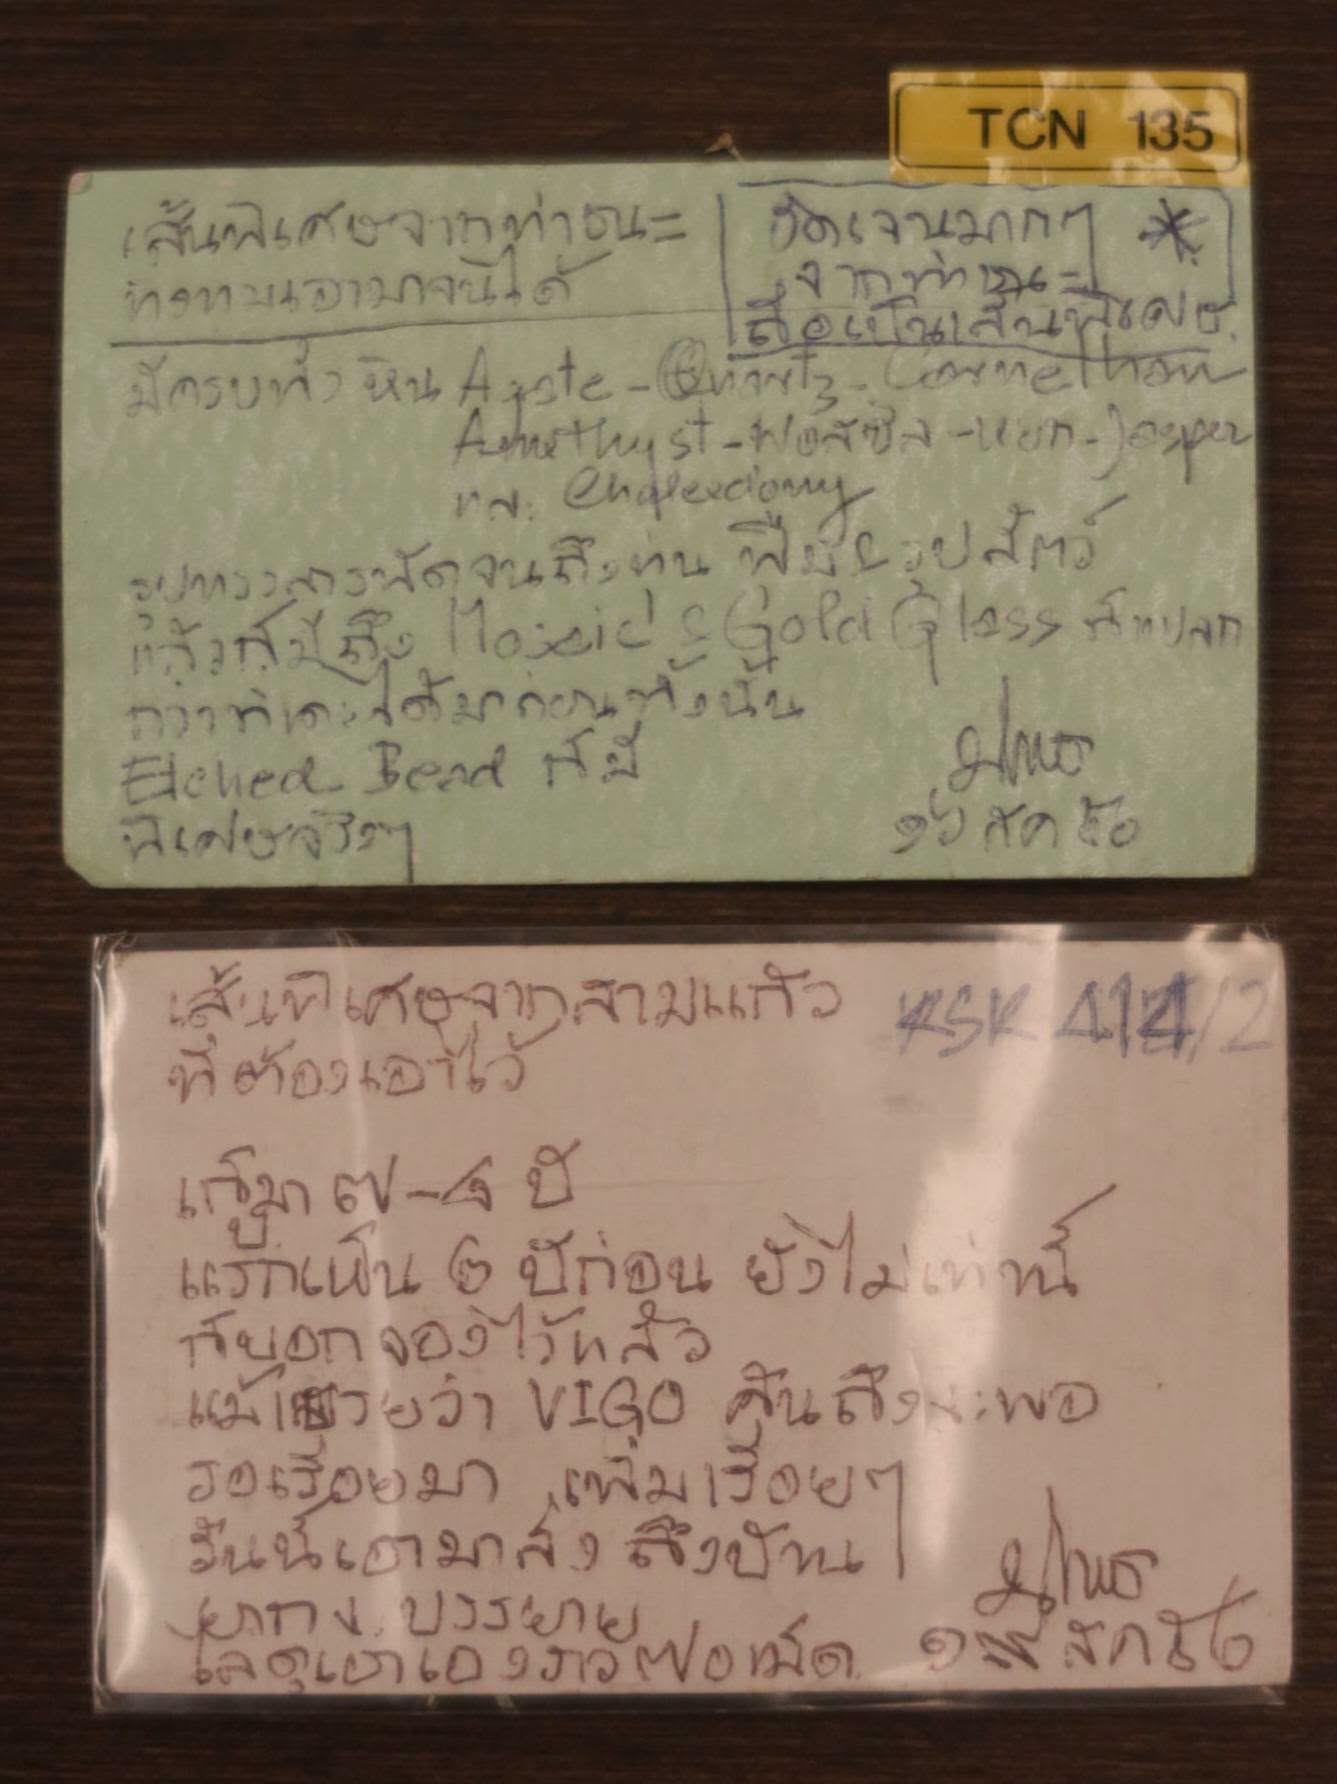 TCN 135
เส้นพิเศษจากท่าชนะ
ชัดเจนมากๆ
จากท่าชนะ
ถือเป็นเส้นพิเศษ.
มีครบทั้ง หิน Agate - Quartz - Cornelhian
Amethyst - ฟอสซิล - หยก - Jasper
และ Chalcedony
รูปทรงสารพัดจนถึง รูปสัตว์
แล้วก็มีถึง Mosaic & Gold Glass ที่แปลก
กว่าที่เคยได้มาก่อนทั้งนั้น
Etched Bead ก็มี
พิเศษจริงๆ
๑๖ สค ๕๐
เส้นพิเศษจากสามแก้ว
KSK 414/2
ที่ต้องเอาไว้
เก็บมา ๗-๘ ปี
แรกเห็น ๖ ปีก่อน ยังไม่เท่านี้
ก็บอกจองไว้แล้ว
ว่า VIGO คันถึงจะพอ
รอเรื่อยมา เพิ่มเรื่อยๆ
วันนี้เอามาส่ง ถึงบ้าน
ยากจะ บรรยาย
สค ๕๐